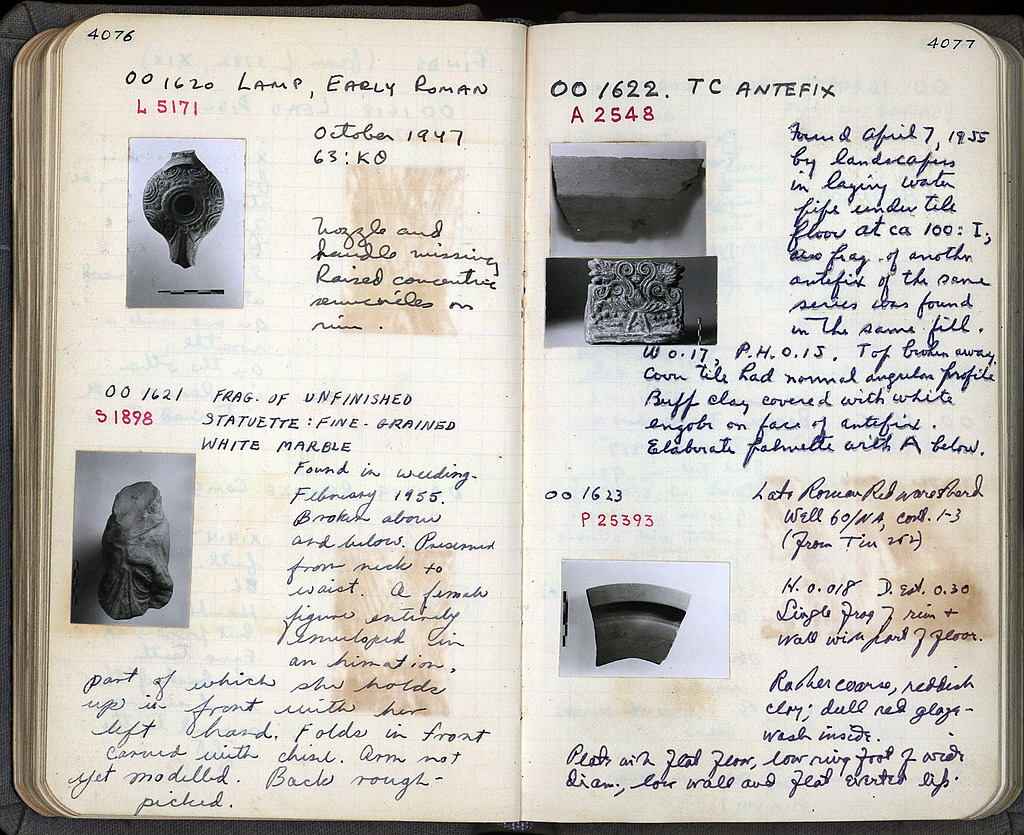 4076
OO 1620 LAMP, EARLY ROMAN
L 5171
October 1947
63:KΘ
Nozzle and
handle missing
Raised concentric
semicircles on
rim.
OO 1621 FRAG. OF UNFINISHED
S 1898 STATUETTE: FINE-GRAINED
WHITE MARBLE
Found in weeding-
February 1955.
Broken above
and below. Preserved
from neck to
waist. A female
figure entirely
enveloped in
an himation,
part of which she holds
up in front with her
left hand. Folds in front
carved with chisel. Arm not
yet modelled. Back rough-
picked.
4077
OO 1622. TC ANTEFIX
A 2548
Found April 7, 1955
by landscapers
in laying water
pipe under tile
floor at ca 100:I;
also frag. of another
antefix of the same
series was found
in the same fill.
W 0.17, P.H. 0.15. Top broken away.
Cover tile had normal angular profile
Buff clay covered with white
engobe on face of antifix.
Elaborate palmette with A below.
OO 1623 Late Roman Red ware sherd
P 25393 Well 60/NA, cont. 1-3
(From Tin 252)
H. 0.018 D. est. 0.30
Single frag of rim +
wall with part of floor.
Rather coarse, reddish
clay; dull red glaze-
wash inside.
Plate with flat floor, low ring foot of wide
diam., low wall and flat everted lip.